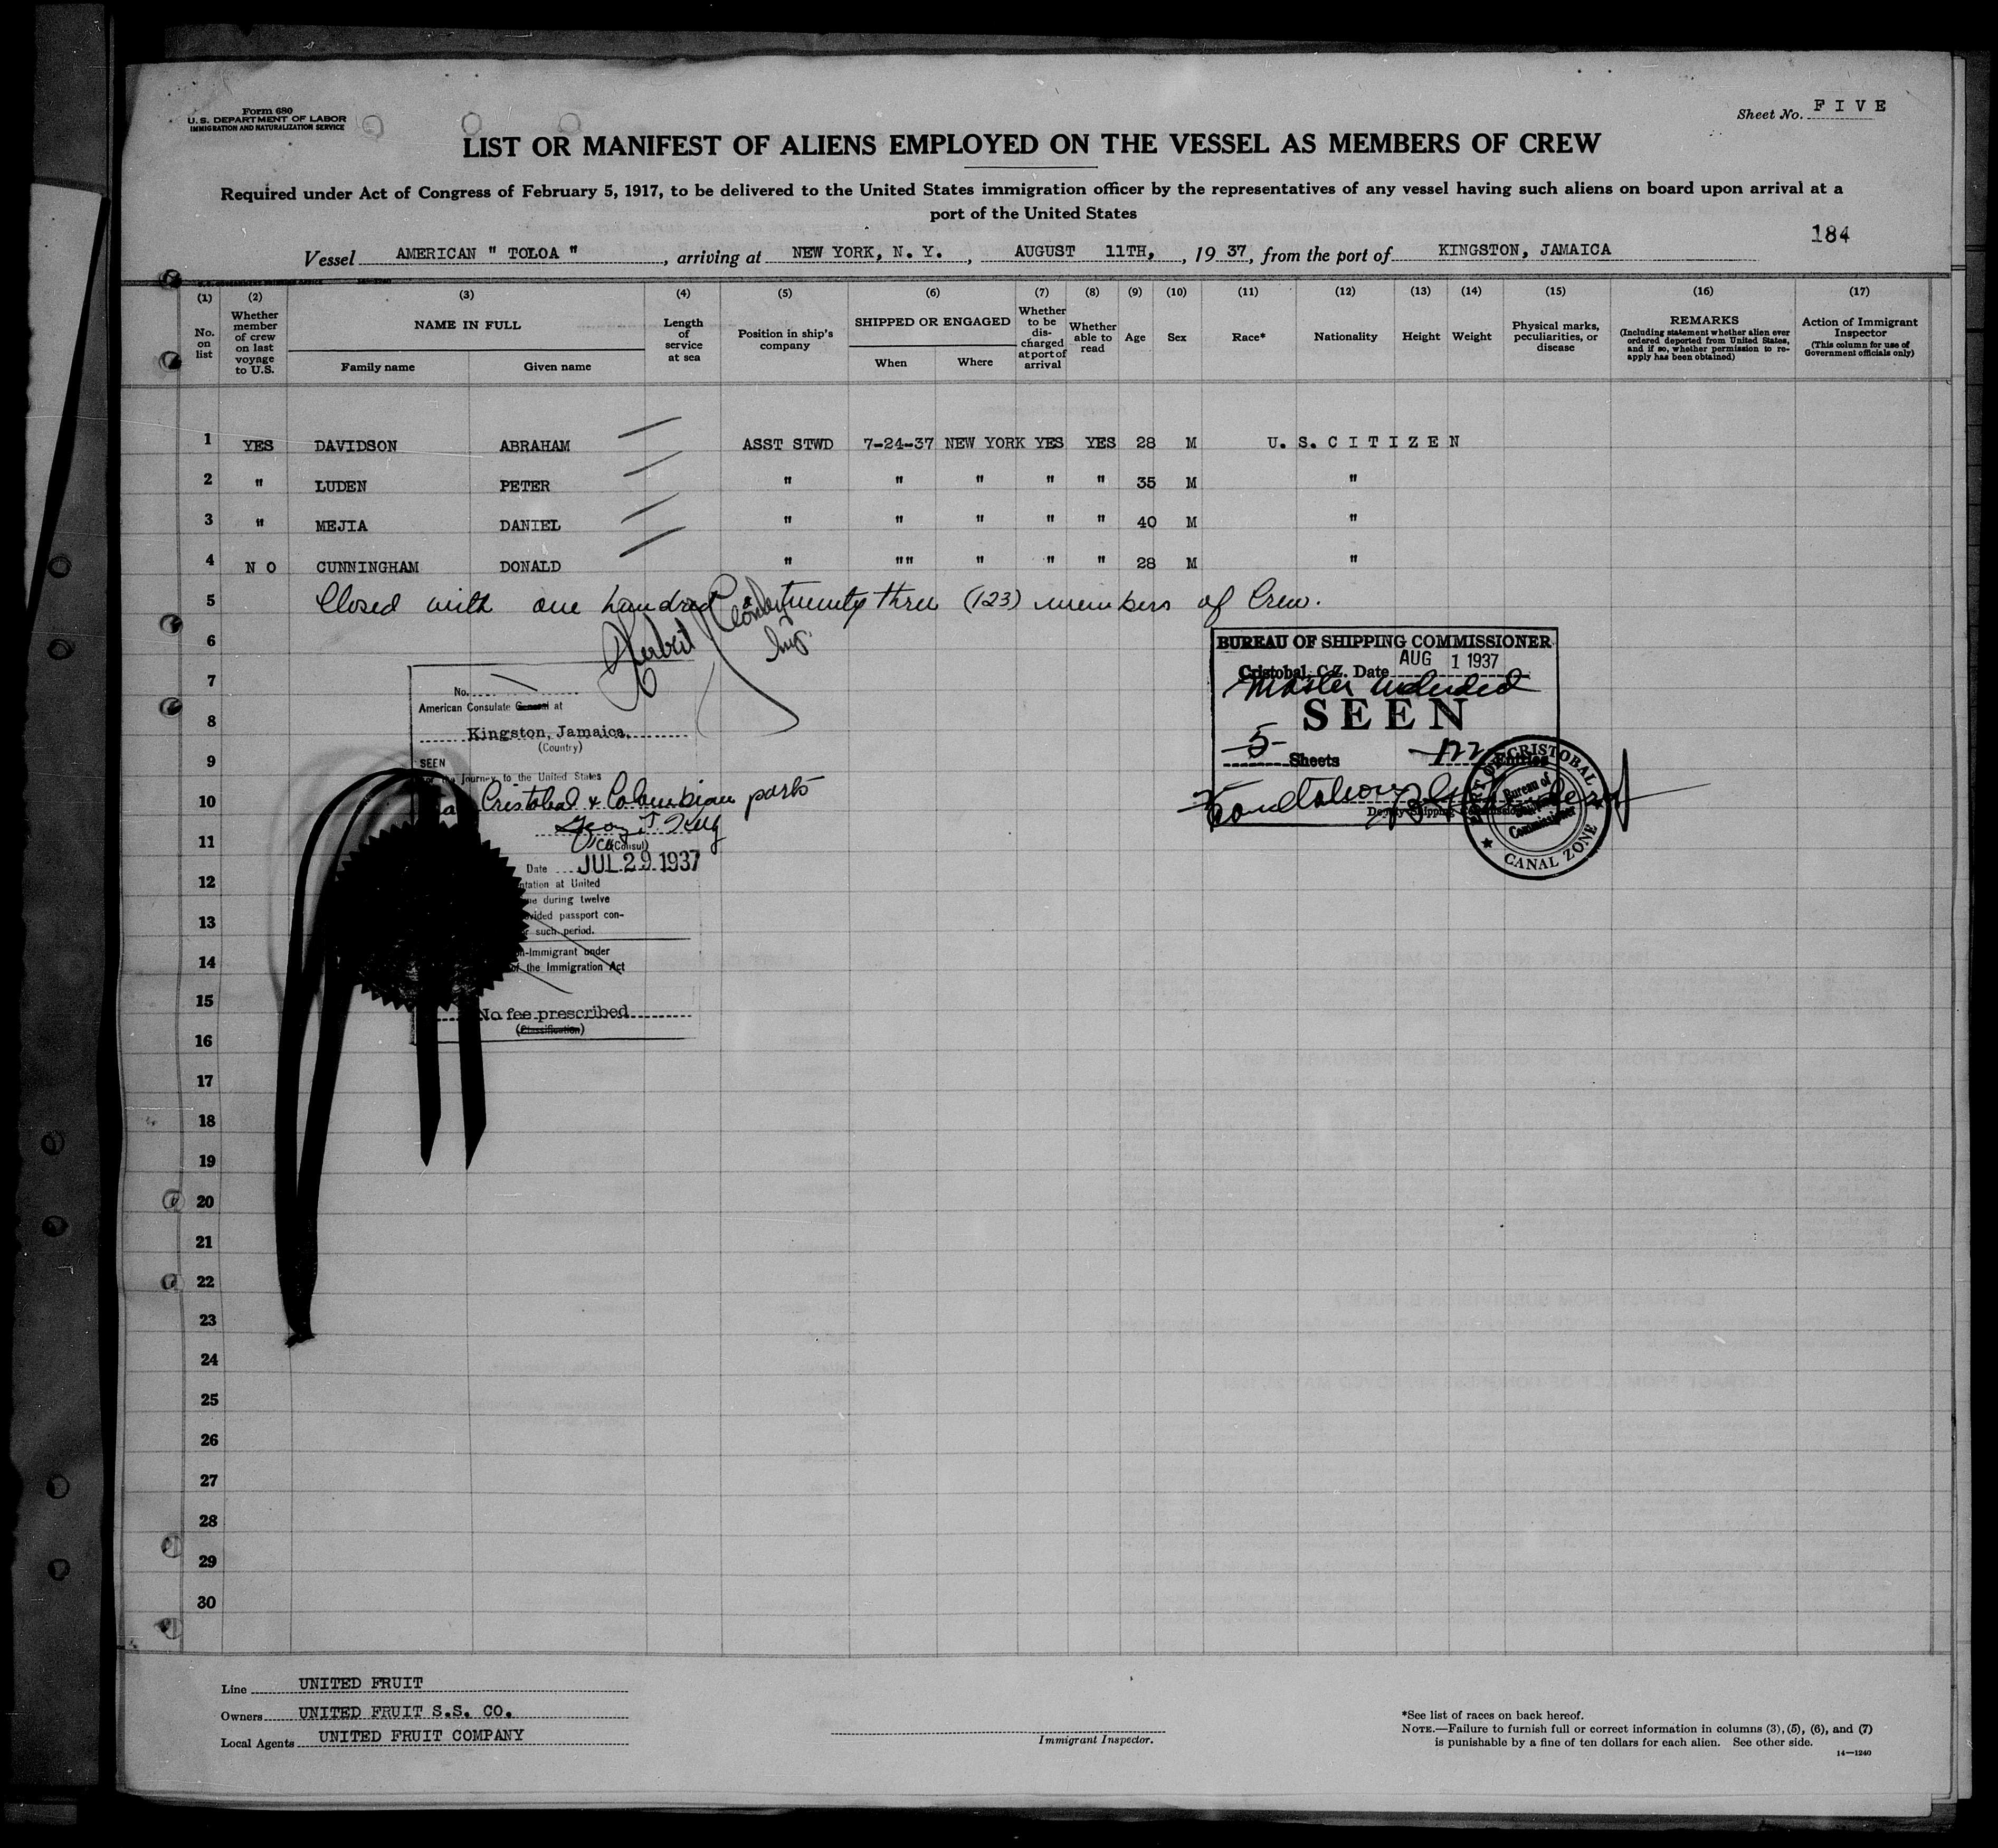 Form 680
U. S. DEPARTMENT OF LABOR
IMMIGRATION AND NATURALIZATION SERVICE
Sheet No. F I V E
LIST OR MANIFEST OF ALIENS EMPLOYED ON THE VESSEL AS MEMBERS OF CREW
Required under Act of Congress of February 5, 1917, to be delivered to the United States immigration officer by the representatives of any vessel having such aliens on board upon arrival at a
port of the United States
184
Vessel AMERICAN " TOLOA ", arriving at NEW YORK, N. Y., AUGUST 11TH, , 19 37, from the port of KINGSTON, JAMAICA
(1) (2) (3) (4) (5) (6) (7) (8) (9) (10) (11) (12) (13) (14) (15) (16) (17)
No. on list
Whether member of crew on last voyage to U.S.
NAME IN FULL
Family name
Given name
Length of service at sea
Position in ship's company
SHIPPED OR ENGAGED
When
Where
Whether to be discharged at port of arrival
Whether able to read
Age
Sex
Race*
Nationality
Height
Weight
Physical marks, peculiarities, or disease
REMARKS
(Including statement whether alien ever ordered deported from United States, and if so, whether permission to re-apply has been obtained)
Action of Immigrant Inspector
(This column for use of Government officials only)
1 YES DAVIDSON ABRAHAM ASST STWD 7-24-37 NEW YORK YES YES 28 M U. S. C I T I Z E N
2 " LUDEN PETER " " " " " 35 M "
3 " MEJIA DANIEL " " " " " 40 M "
4 N O CUNNINGHAM DONALD " "" " " " 28 M "
5 Closed with one hundred & twenty three (123) members of Crew.
6
7
8
9
10
11
12
13
14
15
16
17
18
19
20
21
22
23
24
25
26
27
28
29
30
Herbert
No.
American Consulate General at
Kingston, Jamaica.
(Country)
SEEN
the Journey to the United States
Cristobal & Colombian ports
Vice (Consul)
Date JUL 29 1937
ntation at United
during twelve
passport con-
such period.
n-Immigrant under
of the Immigration Act
No fee prescribed
(Classification)
BUREAU OF SHIPPING COMMISSIONER
Cristobal, C. Z. Date AUG 1 1937
Master included
SEEN
5 Sheets Entries
Deputy Shipping Commissioner
PORT OF CRISTOBAL
Bureau of Shipping Commissioner
CANAL ZONE
Line UNITED FRUIT
Owners UNITED FRUIT S.S. CO.
Local Agents UNITED FRUIT COMPANY
Immigrant Inspector.
*See list of races on back hereof.
NOTE.—Failure to furnish full or correct information in columns (3), (5), (6), and (7)
is punishable by a fine of ten dollars for each alien. See other side.
14—1240